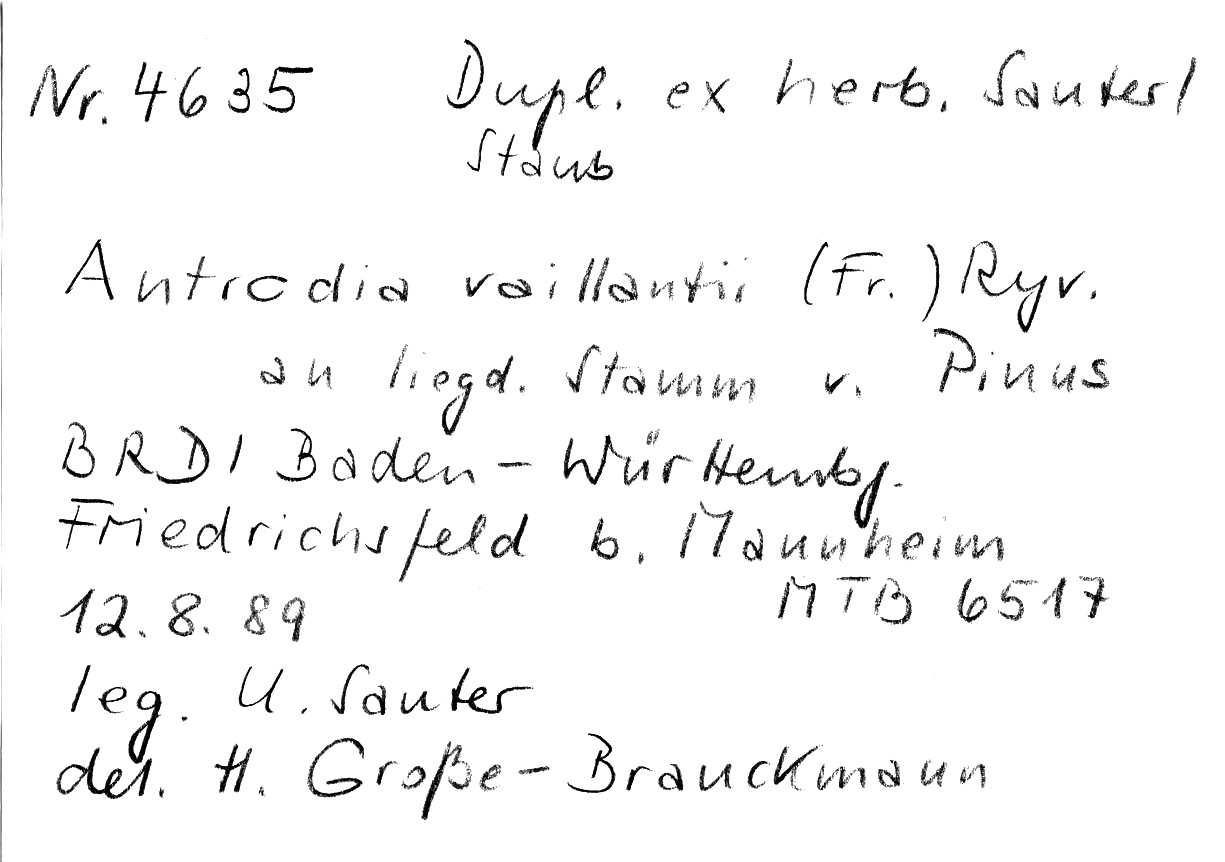 Nr. 4635 Dupl. ex herb. Sauter/
Staub
Antrodia vaillantii (Fr.) Ryv.
an liegd. Stamm v. Pinus
BRD/ Baden-Württembg.
Friedrichsfeld b. Mannheim
12.8.89 MTB 6517
leg. U. Sauter
det. H. Große-Brauckmann